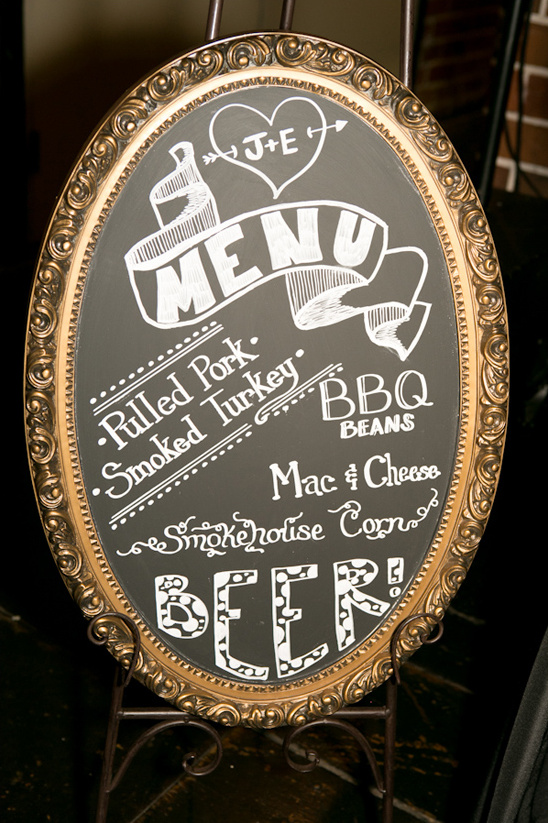 J+E
MENU
• Pulled Pork •
• Smoked Turkey •
BBQ
BEANS
Mac & Cheese
Smokehouse Corn
BEER!